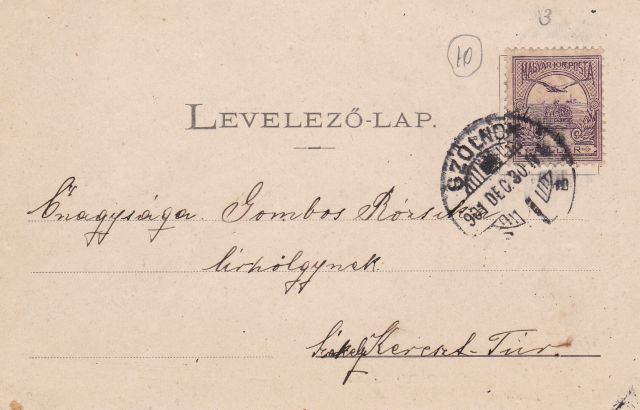 3
10
MAGYAR KIR. POSTA
LEVELEZŐ-LAP.
SZOLNOK
901 DEC. 30
Őnagysága Gombos Rózsika
úrhölgynek
Székely Kereszt-Túr.